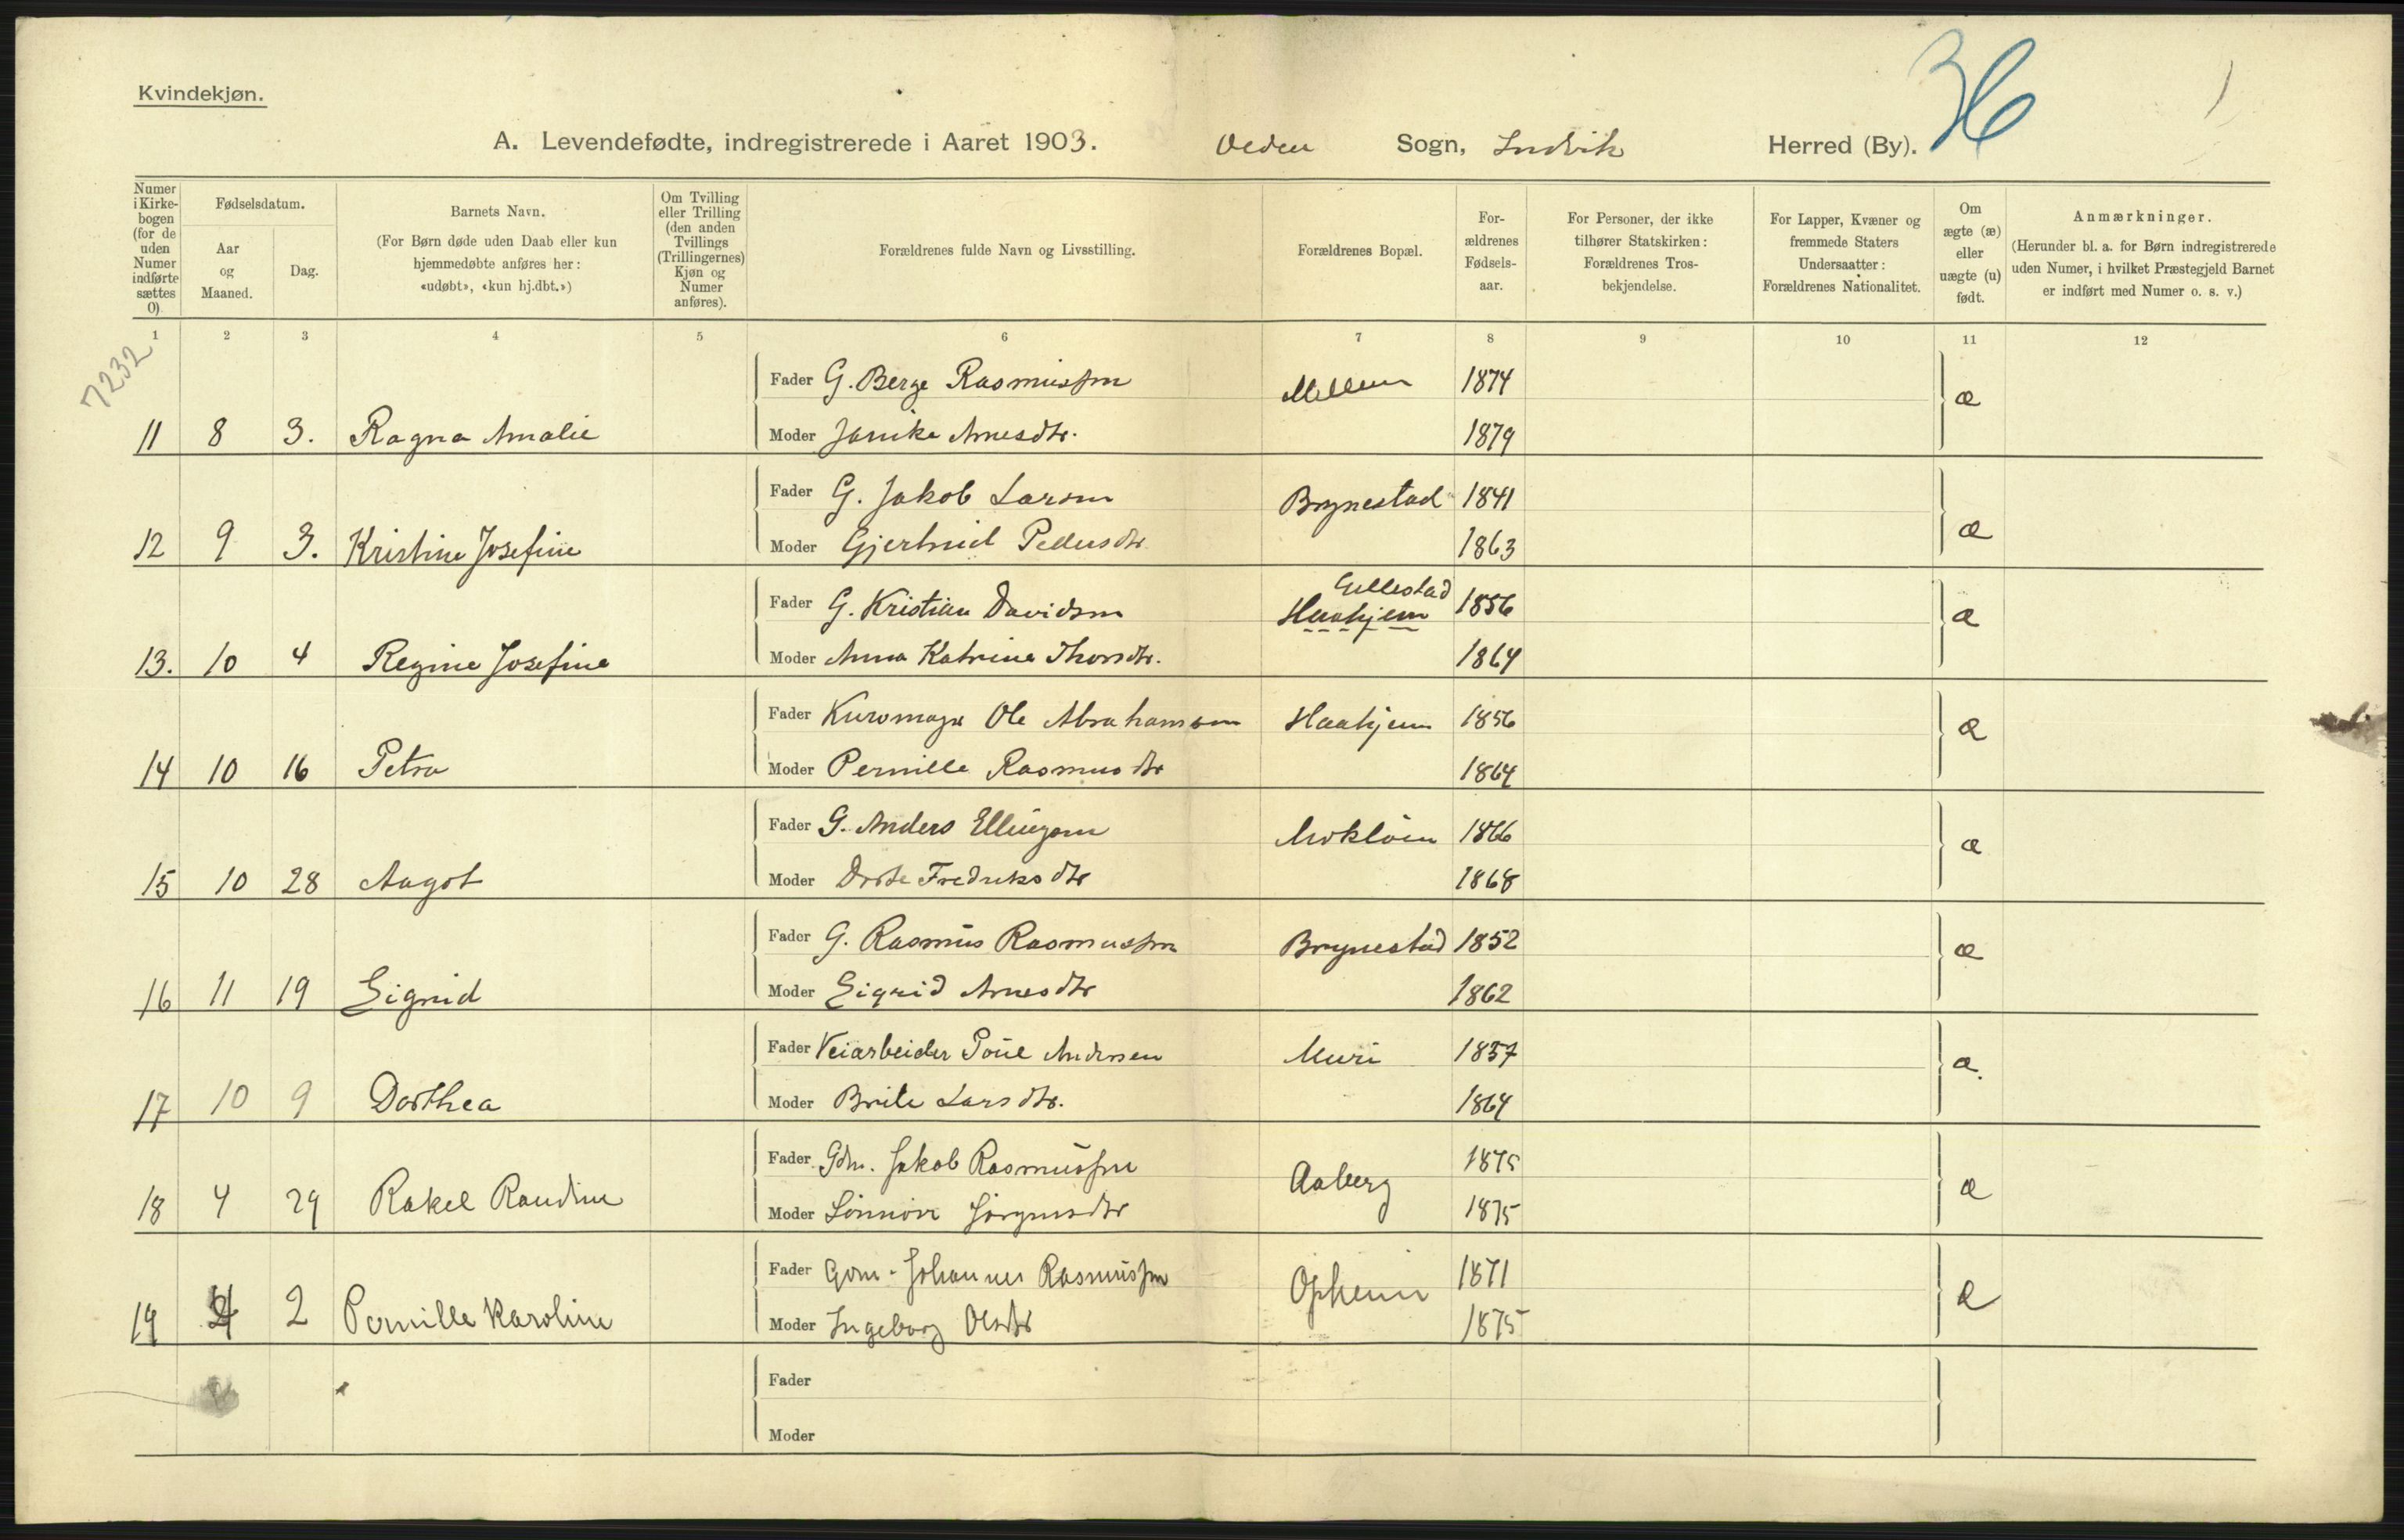 Kvindekjøn.
36
A. Levendefødte, indregistrerede i Aaret 1903. Veden Sogn, Indvik Herred (By).
Numer i Kirke-bogen (for de uden Numer indførte sættes 0)
Fødselsdatum.
Aar og Maaned.
Dag.
Barnets Navn.
(For Børn døde uden Daab eller kun
hjemmedøbte anføres her:
«udøbt», «kun hj.dbt.»)
Om Tvilling
eller Trilling
(den anden
Tvillings
(Trillingernes)
Kjøn og
Numer
anføres).
Forældrenes fulde Navn og Livsstilling.
Forældrenes Bopæl.
For-
ældrenes
Fødsels-
aar.
For Personer, der ikke
tilhører Statskirken:
Forældrenes Tros-
bekjendelse.
For Lapper, Kvæner og
fremmede Staters
Undersaatter:
Forældrenes Nationalitet.
Om
ægte (æ)
eller
uægte (u)
født.
Anmærkninger.
(Herunder bl. a. for Børn indregistrerede
uden Numer, i hvilket Præstegjeld Barnet
er indført med Numer o. s. v.)
1 2 3 4 5 6 7 8 9 10 11 12
7232
Fader G. Berge Rasmussen Mellem 1874 æ
11 8 3. Ragna Amalie Moder Janike Arnesdtr. 1879
Fader G. Jakob Larsen Brynestad 1841 æ
12 9 3. Kristine Josefine Moder Gjertrud Pedersdtr 1863
Gullestad
Fader G. Kristian Davidsen Haahjem 1856 æ
13. 10 4 Regine Josefine Moder Anna Katrine Thorsdtr. 1864
Fader Kurvmager Ole Abrahamsen Haahjem 1856 æ
14 10 16 Petra Moder Pernille Rasmusdtr 1864
Fader G. Anders Ellingsen 1866 æ
15 10 28 Aagot Moder Dorte Fredriksdtr 1868
Fader G. Rasmus Rasmussen Brynestad 1852 æ
16 11 19 Sigrid Moder Sigrid Arnesdtr 1862
Fader Veiarbeider Poul Andersen Muri 1857 æ.
17 10 9 Dorthea Moder Brite Larsdtr. 1864
Fader Gdm. Jakob Rasmussen Aaberg 1875 æ
18 4 29 Rakel Randine Moder Synnøve Jørgensdtr 1875
Fader Gdm. Johannes Rasmussen Opheim 1871 æ
19 4 2 Pernille Karoline Moder Ingeborg Olsdtr 1875
Fader
Moder